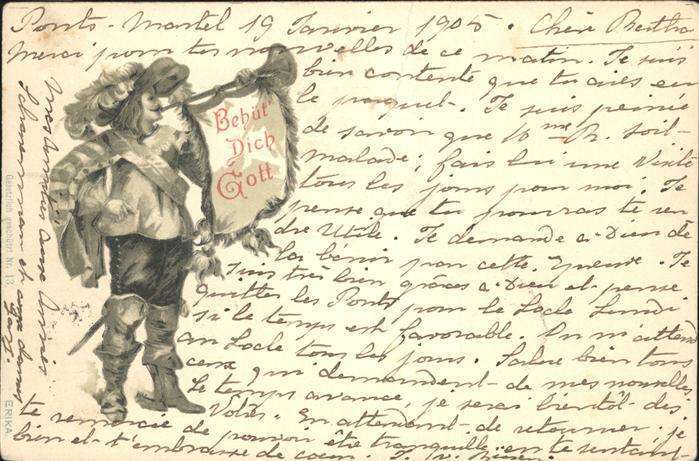 Ponts-Martel 19 Janvier 1905. Chère Bertha
Merci pour tes nouvelles de ce matin. Je suis
bien contente que tu aies eu
le paquet. Je suis peinée
de savoir que Mme R. soit
malade; fais lui une visite
tous les jours pour moi. Je
pense que tu pourras te ren
dre utile. Je demande à Dieu de
la bénir par cette épreuve. Je
suis très bien grâces à Dieu et pense
quitter les Ponts pour le Locle Lundi
si le temps est favorable. On m'attend
au Locle tous les jours. Salue bien tous
ceux qui demandent de mes nouvelles
Le temps avance, je serai bientôt des
vôtres. En attendant de retourner, je
te remercie de pouvoir être tranquille en te sentant
bien et t'embrasse de coeur.
Behüt'
Dich
Gott
Mes amitiés aux
et aux dames
Génération postkarte Nr. 13
ERIKA.